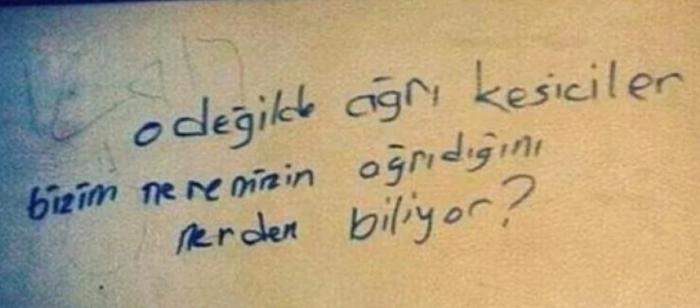 o değilde ağrı kesiciler
bizim neremizin ağrıdığını
nerden biliyor?